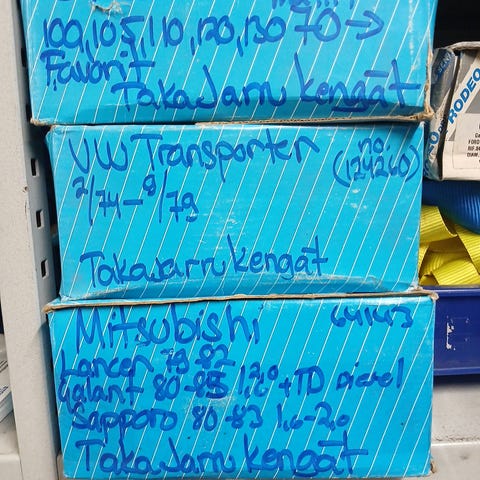 100,105,110,120,130 70→
Favorit
Takajarru kengät
VW Transporter
no.
(124260)
2/74-9/79
Takajarru kengät
Mitsubishi 641413
Lancer 79-82
Galant 80-85 1,6- +TD Diesel
Sapporo 80-83 1,6-2,0
Takajarru kengät
RODEO
FORD